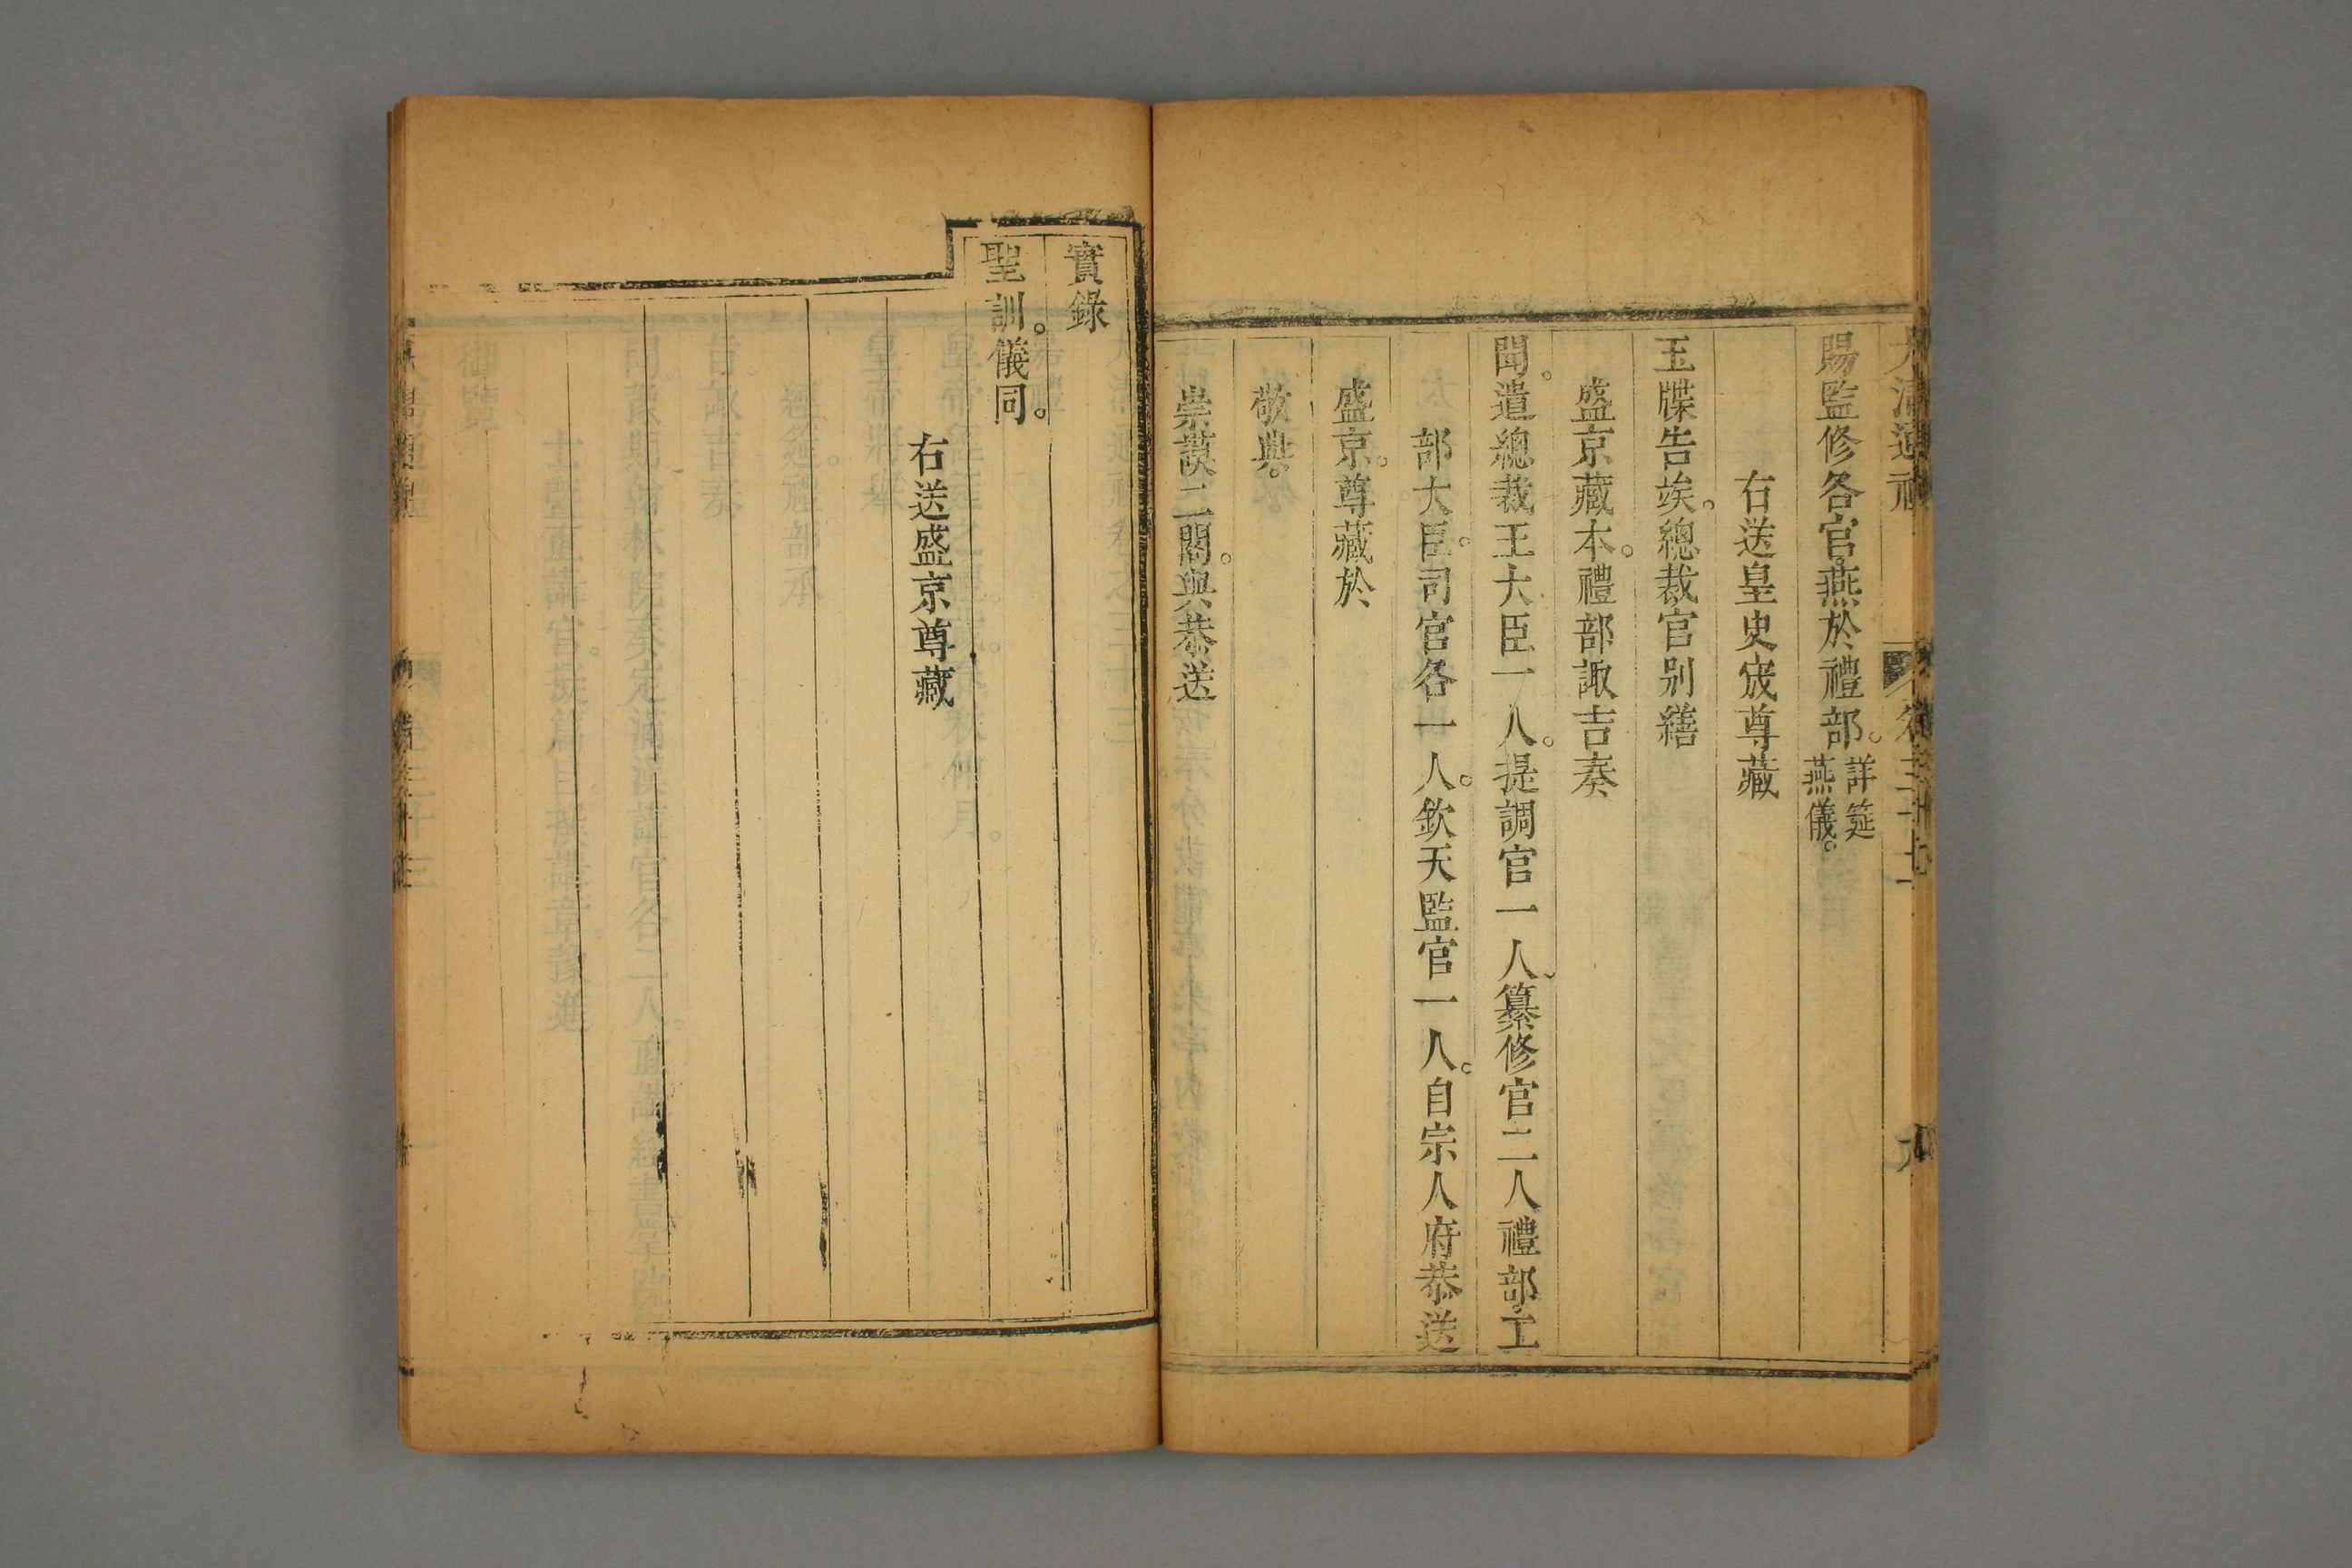 大清通禮 卷三十二 九
賜監修各官。燕於禮部。詳筵燕儀。
右送皇史宬尊藏
玉牒告竢。總裁官別繕
盛京藏本。禮部諏吉奏
聞。遣總裁王大臣一人。提調官一人、纂修官二人禮部、工
部大臣。司官各一人。欽天監官一人。自宗人府恭送
盛京。尊藏於
敬典。
崇謨二閣。與恭送
實錄
聖訓。儀同。
右送盛京尊藏